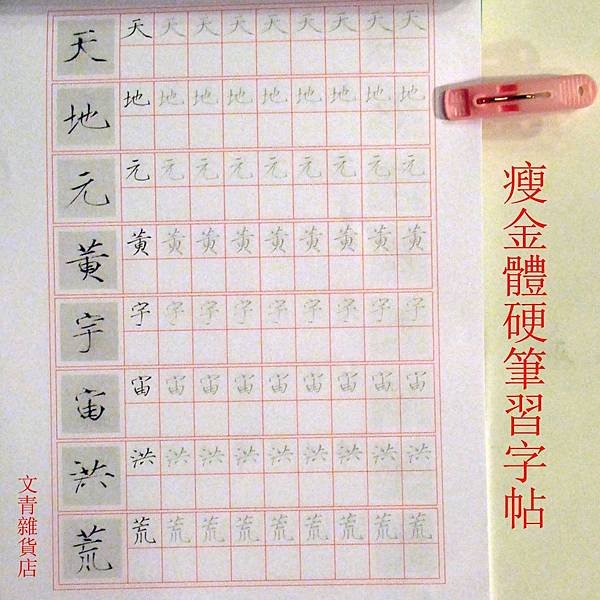 天 天 天 天 天 天 天 天 天 天
地 地 地 地 地 地 地 地 地 地
元 元 元 元 元 元 元 元 元 元
黄 黄 黄 黄 黄 黄 黄 黄 黄 黄
宇 宇 宇 宇 宇 宇 宇 宇 宇 宇
宙 宙 宙 宙 宙 宙 宙 宙 宙 宙
洪 洪 洪 洪 洪 洪 洪 洪 洪 洪
荒 荒 荒 荒 荒 荒 荒 荒 荒 荒
瘦金體硬筆習字帖
文青雜貨店